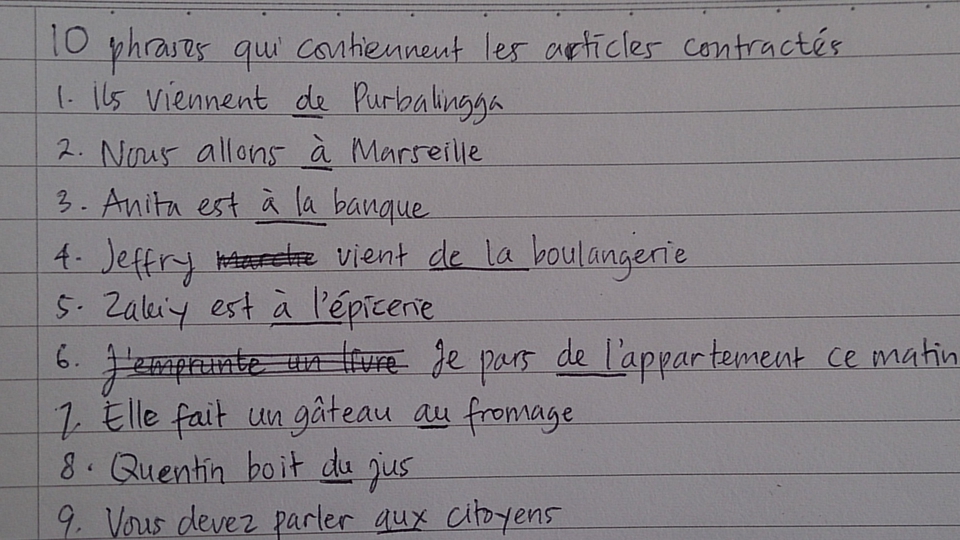 10 phrases qui contiennent les articles contractés
1. ils viennent de Purbalingga
2. Nous allons à Marseille
3. Anita est à la banque
4. Jeffry marche vient de la boulangerie
5. Zakiy est à l'épicerie
6. J'emprunte un livre Je pars de l'appartement ce matin
7. Elle fait un gâteau au fromage
8. Quentin boit du jus
9. Vous devez parler aux citoyens